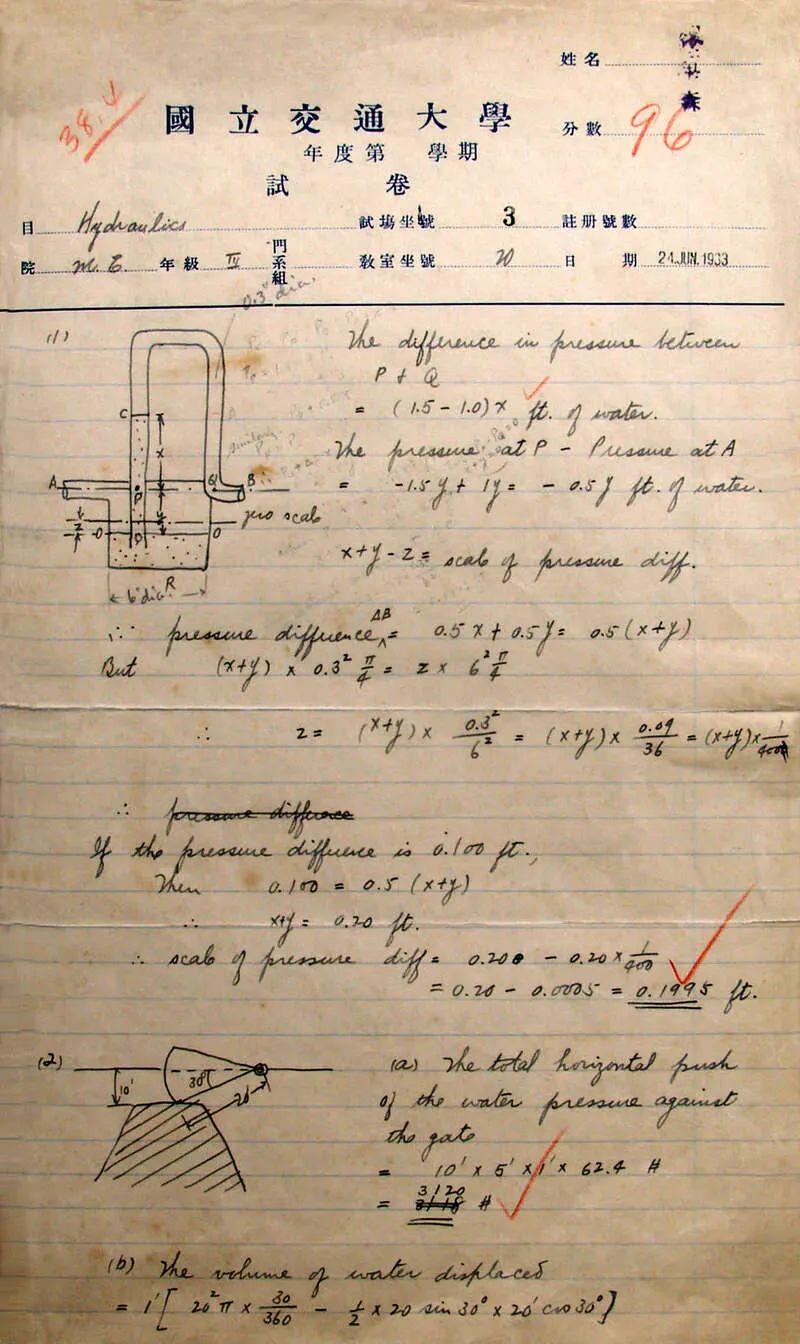 姓名
38.1
國立交通大學
分數 96
年度第 學期
試 卷
目 Hydraulics 試場坐號 3 註册號數
院 M. E. 年級 III 門系組 教室坐號 20 日期 24.JUN.1933
0.3" dia.
(1)
The difference in pressure between
P + Q
= (1.5 - 1.0) x ft. of water.
The pressure at P - Pressure at A
= -1.5 y + 1y = - 0.5 y ft. of water.
x+y - z = scale of pressure diff.
C
x
A
P
Q
B
zero scale
O
O
D
R
6" dia.
∴ pressure difference AB = 0.5 x + 0.5 y = 0.5 (x+y)
But (x+y) x 0.3² π/4 = z x 6² π/4
∴ z = (x+y) x 0.3²/6² = (x+y) x 0.09/36 = (x+y) x 1/400
∴ pressure difference
If the pressure difference is 0.100 ft.,
Then 0.100 = 0.5 (x+y)
∴ x+y = 0.20 ft.
∴ scale of pressure diff = 0.200 - 0.20 x 1/400
= 0.20 - 0.0005 = 0.1995 ft.
(2)
10'
30°
20'
(a) The total horizontal push
of the water pressure against
the gate
= 10' x 5' x 1' x 62.4 #
= 3120 #
(b) The volume of water displaced
= 1' [ 20² π x 30/360 - 1/2 x 20 sin 30° x 20' cos 30° ]